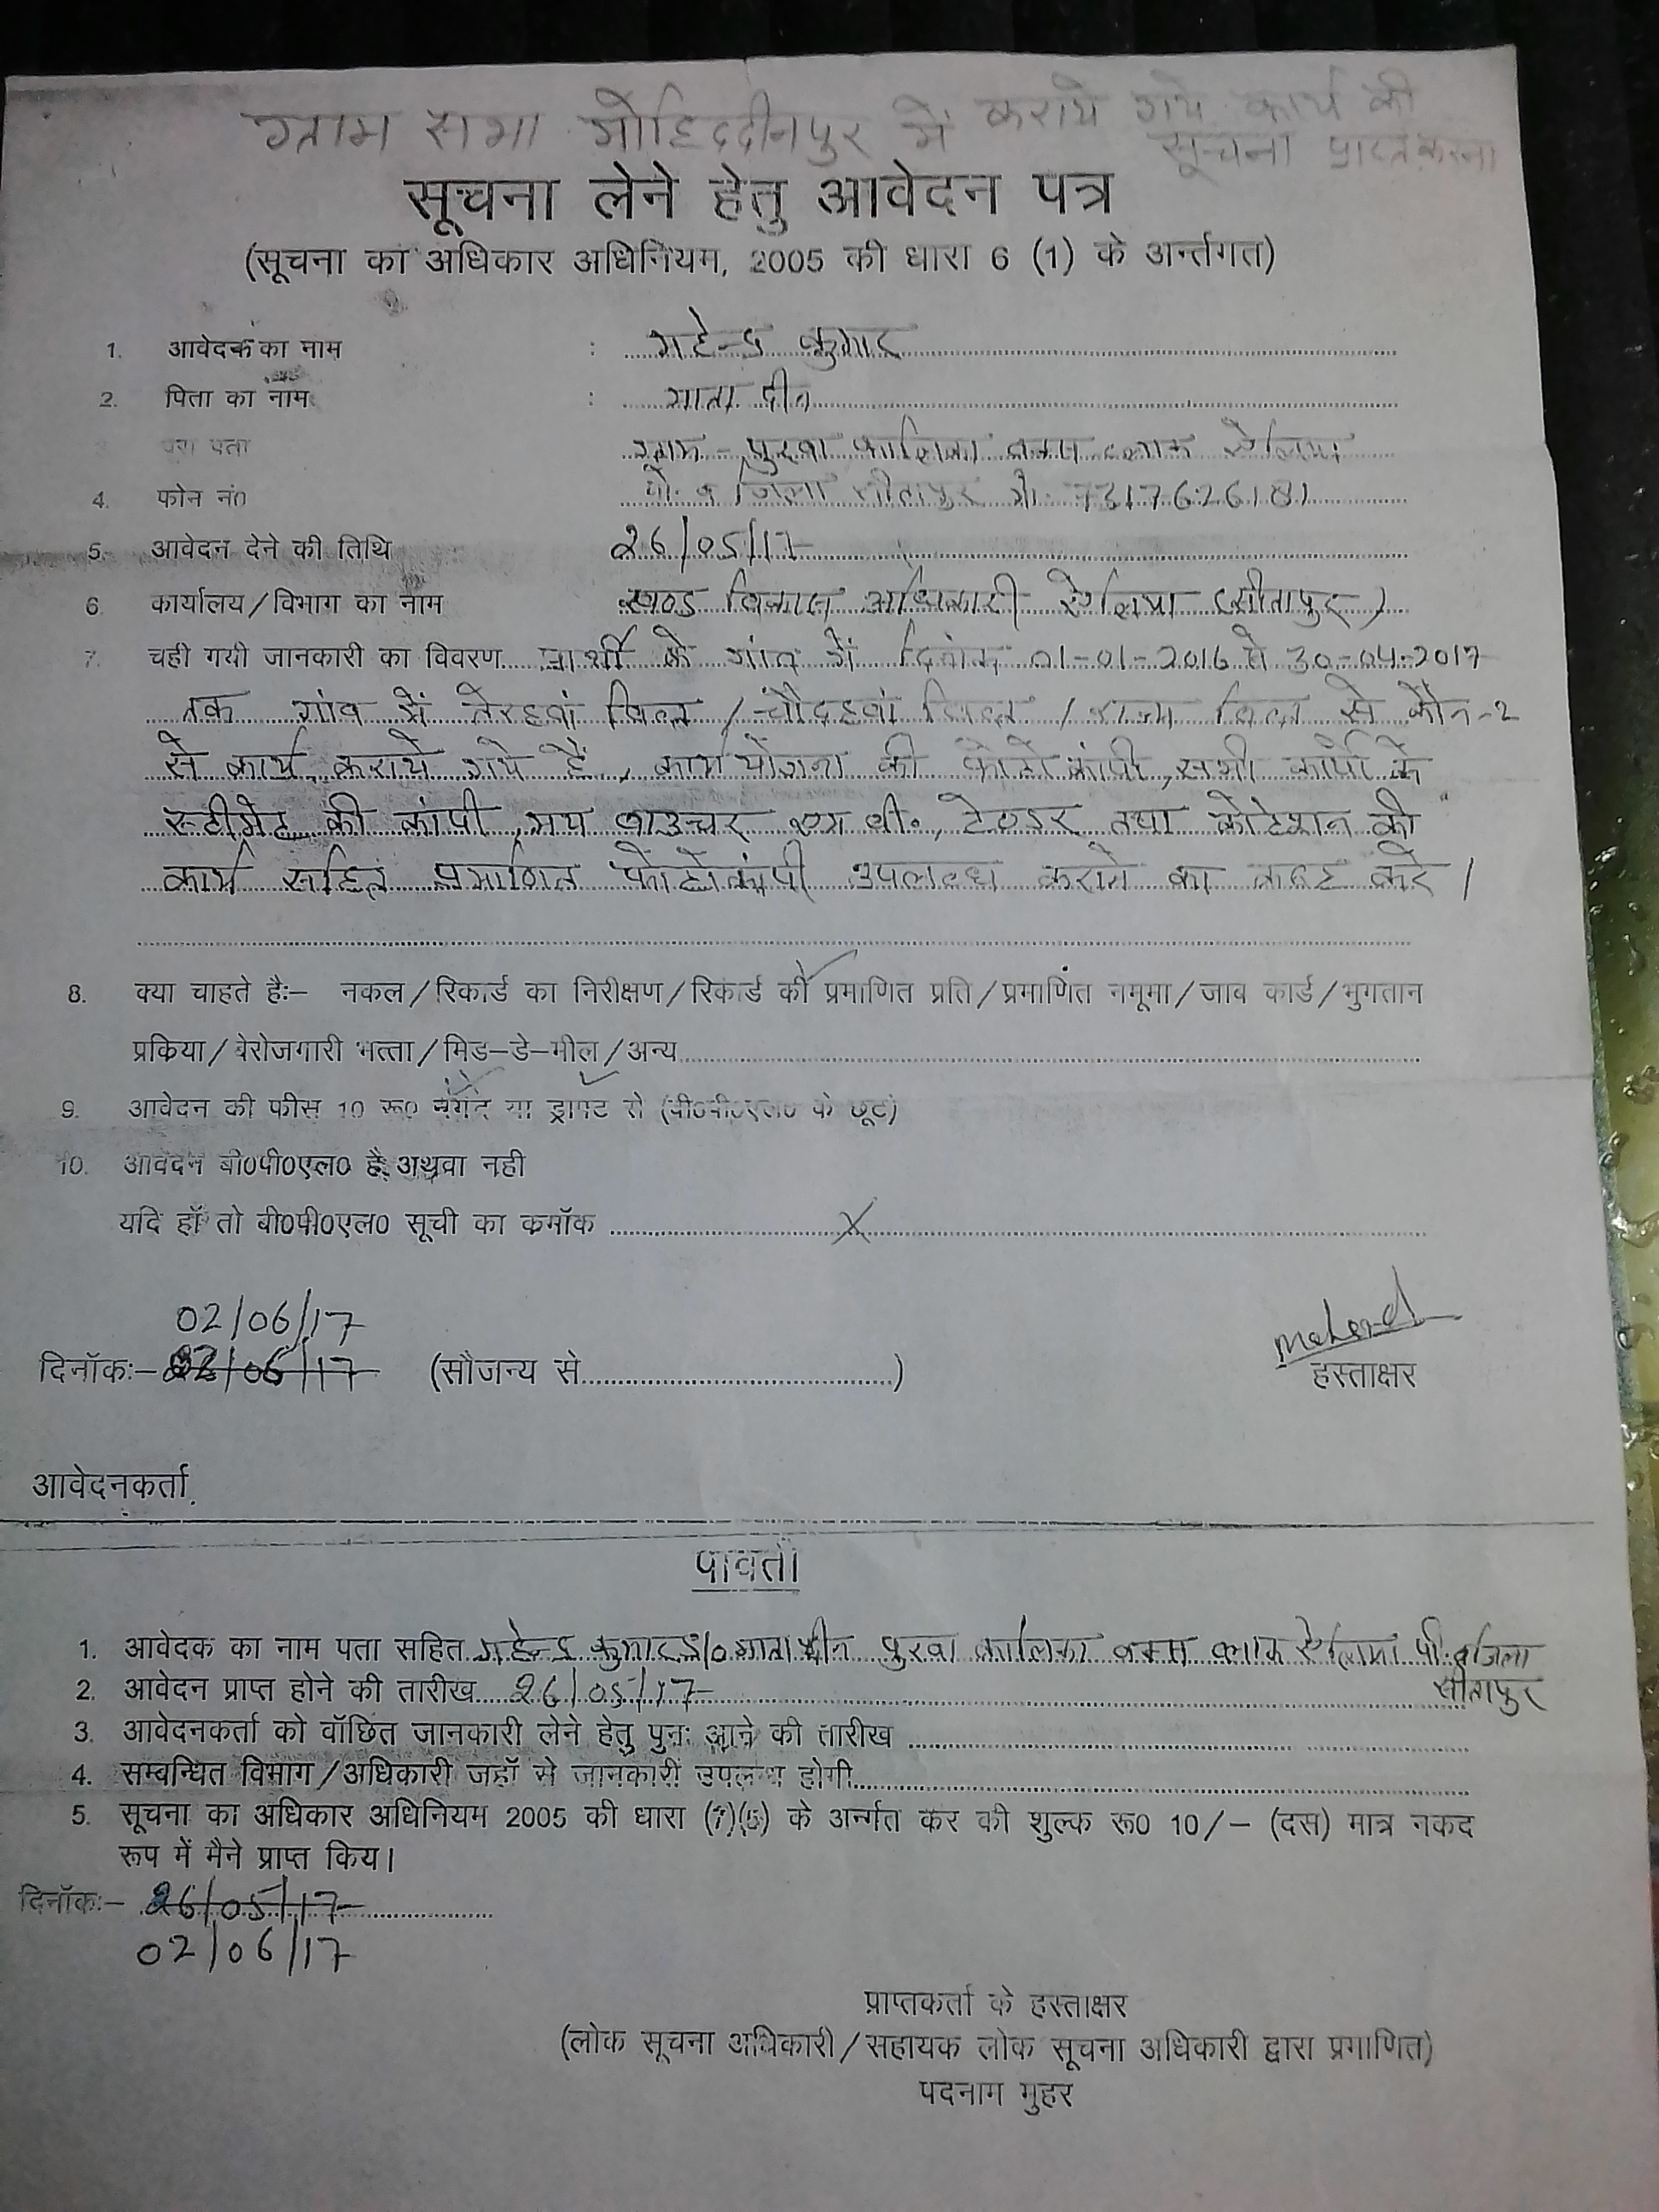 ग्राम सभा मोहिद्दीनपुर में कराये गये कार्य की
सूचना प्राप्त करना
सूचना लेने हेतु आवेदन पत्र
(सूचना का अधिकार अधिनियम, 2005 की धारा 6 (1) के अर्न्तगत)
1. आवेदक का नाम : महेन्द्र कुमार
2. पिता का नाम : माता दीन
3. पता ग्राम - पुरवा कालिका बक्स ब्लाक ऐलिया
4. फोन नं0 पो. व जिला सीतापुर मो. 7317626181
5. आवेदन देने की तिथि 26/05/17
6. कार्यालय/विभाग का नाम खण्ड विकास अधिकारी ऐलिया (सीतापुर)
7. चही गयी जानकारी का विवरण प्रार्थी के गांव में दिनांक 01-01-2016 से 30-04-2017
तक गांव में तेरहवां वित्त / चौदहवां वित्त / राज्य वित्त से कौन-2
से कार्य कराये गये हैं, कार्य योजना की फोटो कांपी, सभी कार्यो के
स्टीमेट की कांपी, मय वाउचर एम बी., टेण्डर तथा कोटेशन की
कार्य सहित प्रमाणित फोटोकांपी उपलब्ध कराने का कष्ट करें ।
8. क्या चाहते हैः– नकल/रिकार्ड का निरीक्षण/रिकार्ड की प्रमाणित प्रति/प्रमाणित नमूमा/जाब कार्ड/भुगतान
प्रकिया/बेरोजगारी भत्ता/मिड–डे–मील/अन्य
9. आवेदन की फीस 10 रू0 नगद या ड्राफ्ट से (बी0पी0एल0 के छूट)
10. आवेदन बी0पी0एल0 है अथवा नही
यदि हॉ तो बी0पी0एल0 सूची का कमॉक X
02/06/17
दिनॉकः– 02/06/17 (सौजन्य से)
हस्ताक्षर
आवेदनकर्ता
पावती
1. आवेदक का नाम पता सहित महेन्द्र कुमार S/o माता दीन पुरवा कालिका बक्स ब्लाक ऐलिया पो. व जिला
सीतापुर
2. आवेदन प्राप्त होने की तारीख 26/05/17
3. आवेदनकर्ता को वॉछित जानकारी लेने हेतु पुनः आने की तारीख
4. सम्बन्धित विभाग/अधिकारी जहॉ से जानकारी उपलब्ध होगी
5. सूचना का अधिकार अधिनियम 2005 की धारा (7)(5) के अर्न्गत कर की शुल्क रू0 10/– (दस) मात्र नकद
रूप में मैने प्राप्त किय।
दिनॉकः– 26/05/17
02/06/17
प्राप्तकर्ता के हस्ताक्षर
(लोक सूचना अधिकारी/सहायक लोक सूचना अधिकारी द्वारा प्रमाणित)
पदनाम मुहर